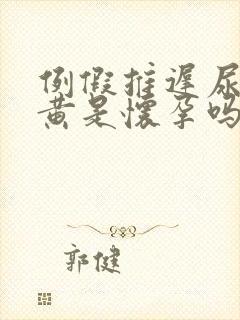 例假推遲尿
黄是懷孕吗
郭健